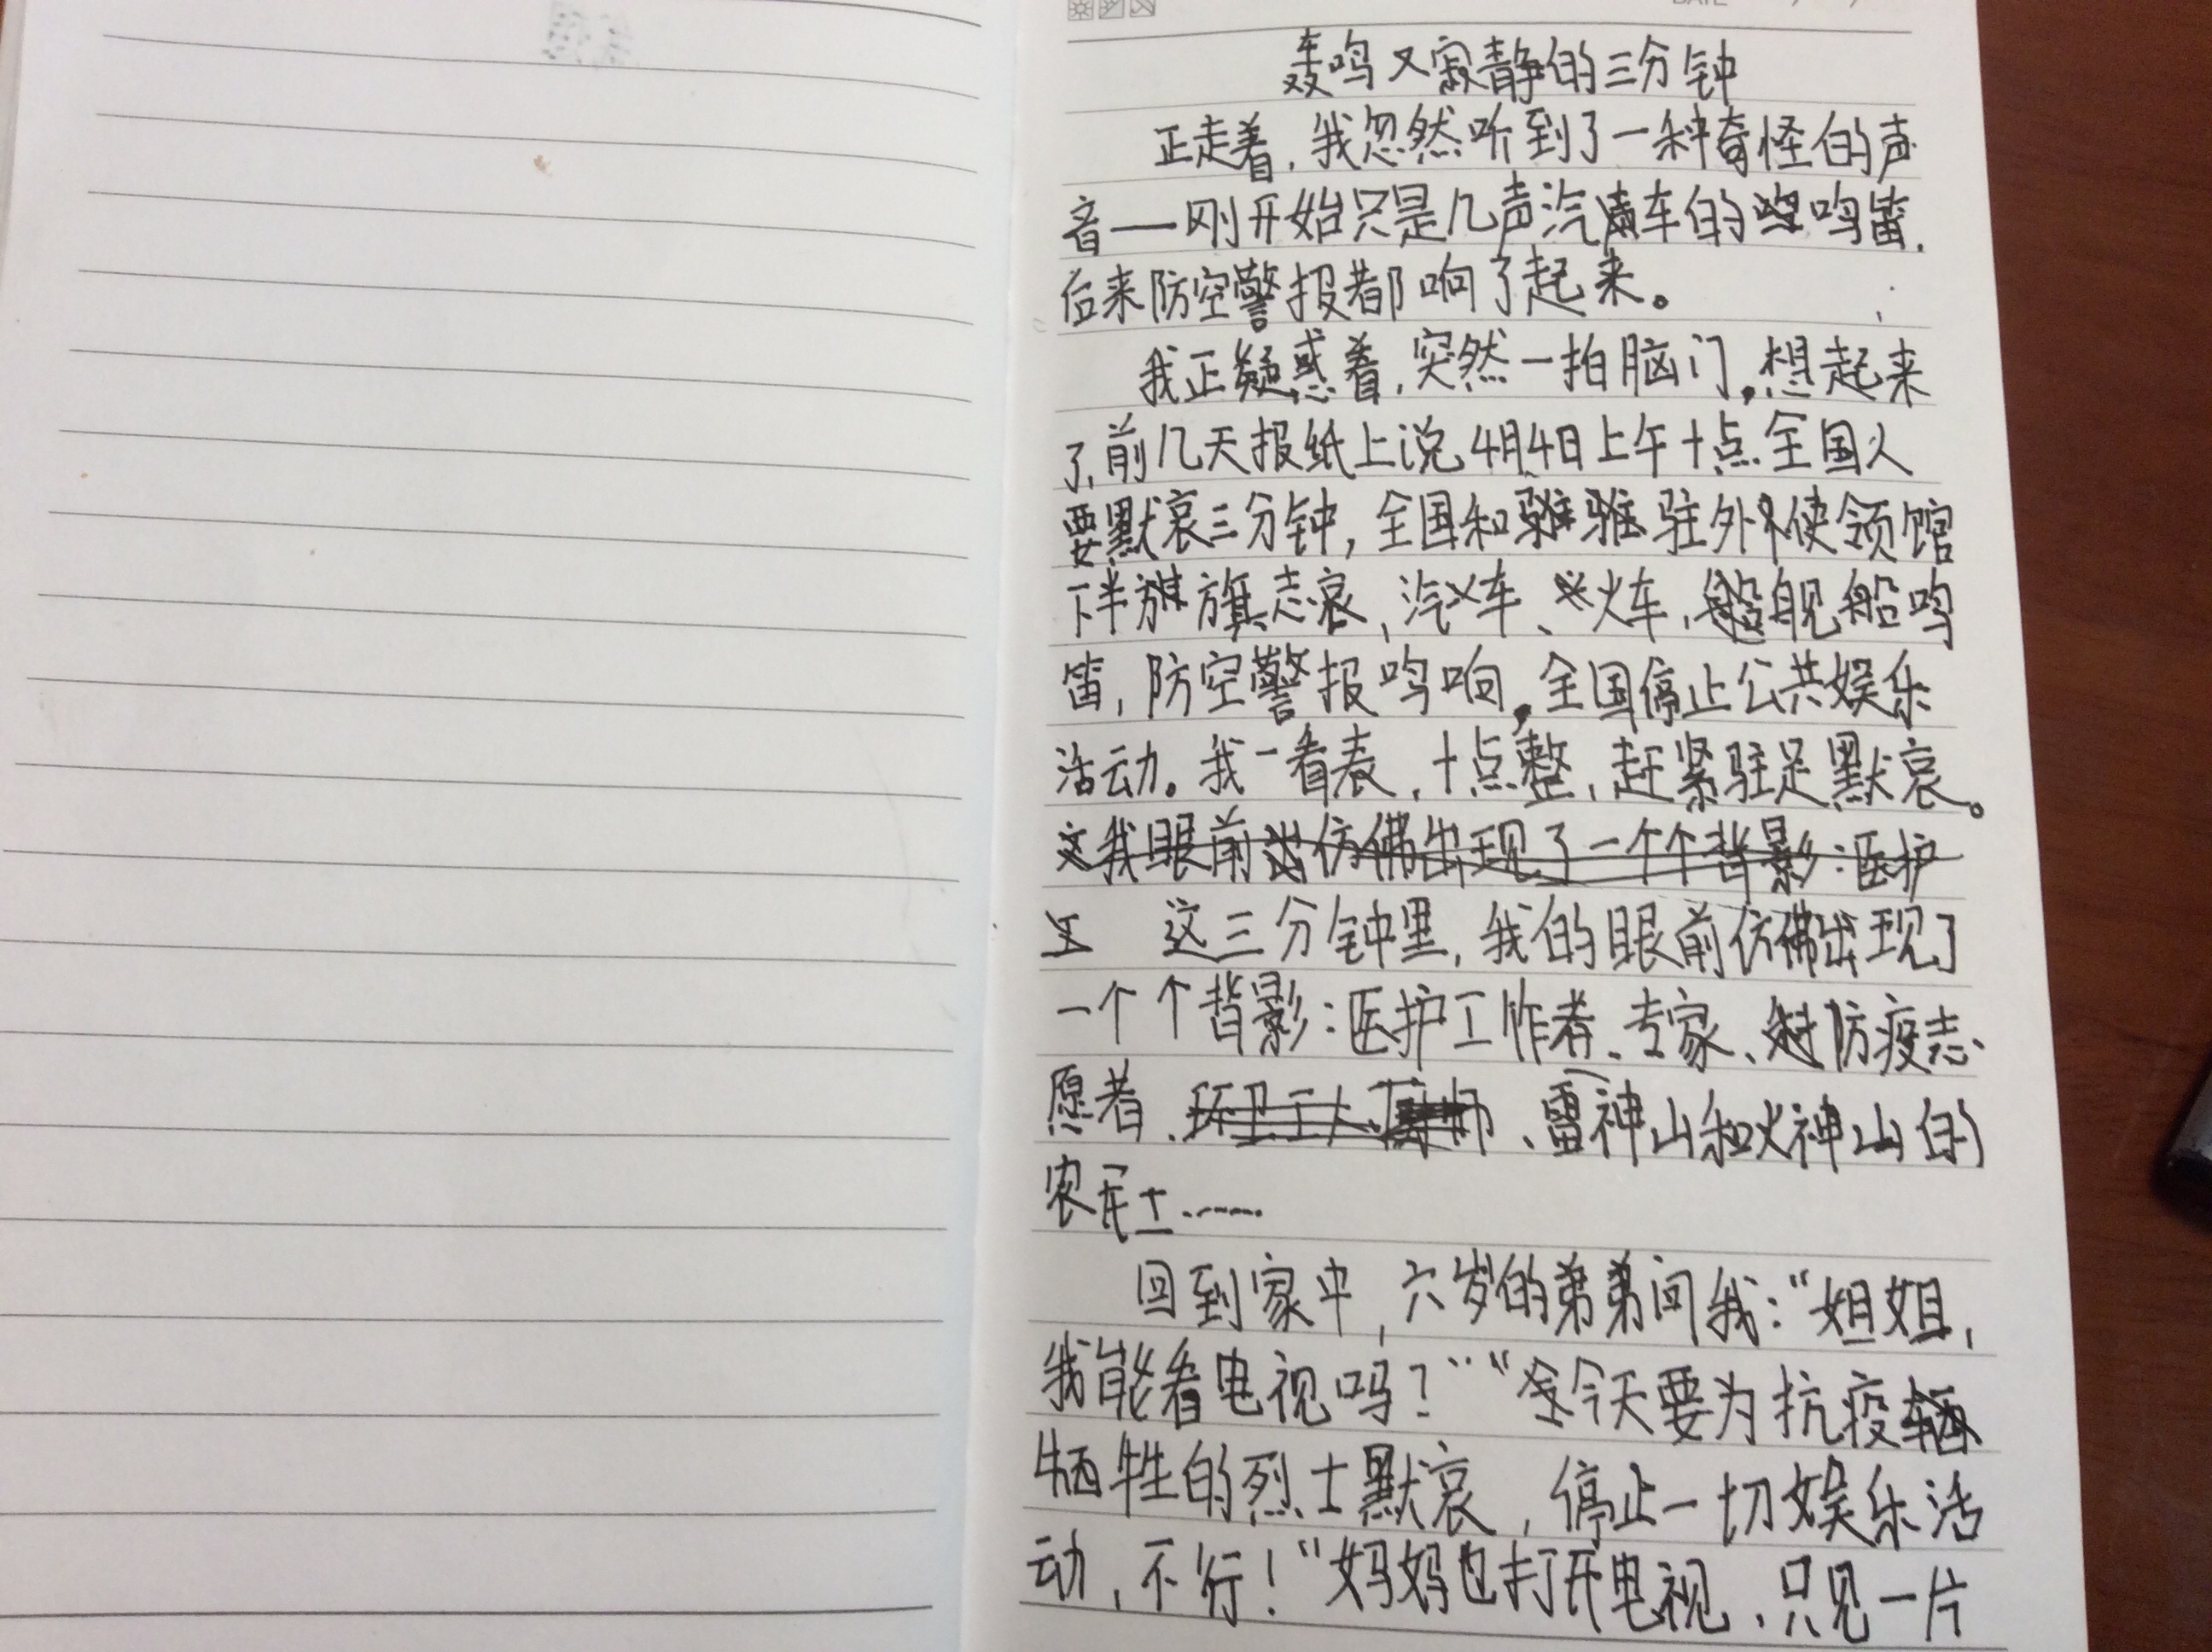 轰鸣又寂静的三分钟
正走着，我忽然听到了一种奇怪的声
音——刚开始只是几声汽车的鸣笛，
后来防空警报都响了起来。
我正疑惑着，突然一拍脑门，想起来
了，前几天报纸上说，4月4日上午十点，全国人
要默哀三分钟，全国和驻外使领馆
下半旗志哀，汽车、火车、舰船鸣
笛，防空警报鸣响，全国停止公共娱乐
活动。我一看表，十点整，赶紧驻足默哀。
这我眼前仿佛出现了一个个背影：医护
工 这三分钟里，我的眼前仿佛出现了
一个个背影：医护工作者、专家、防疫志
愿者、环卫工人、厨师、雷神山和火神山的
农民工……
回到家中，六岁的弟弟问我：“姐姐，
我能看电视吗？”“今天要为抗疫
牺牲的烈士默哀，停止一切娱乐活
动，不行！”妈妈也打开电视，只见一片